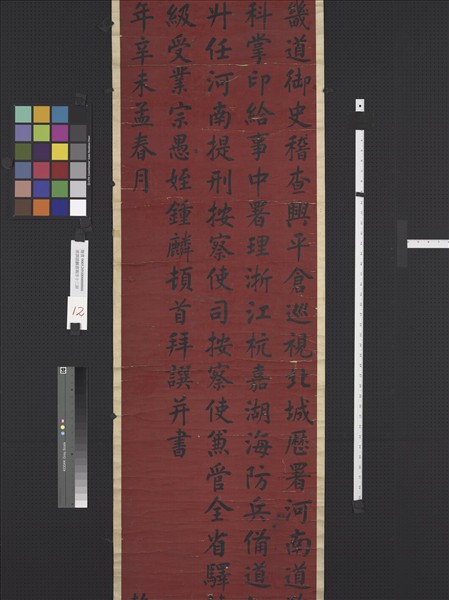 畿道御史稽查興平倉巡視北城歷署河南道
科掌印給事中署理浙江杭嘉湖海防兵備道
升任河南提刑按察使司按察使兼管全省驛
級受業宗愚姪鍾麟頓首拜譔并書
年辛未孟春月
12